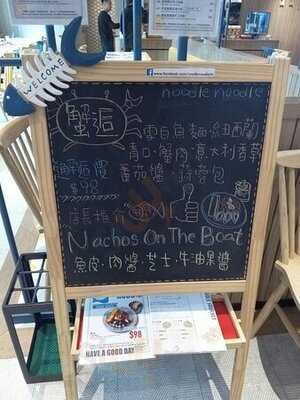 WELCOME
www.facebook.com/noodlenoodlehk
noodle noodle
蟹逅
雪白魚麵·紐西蘭
青口·蟹肉·意大利香草
番茄醬·蒜蓉包
$98
店長推介
Nachos On The Boat
魚皮·肉醬·芝士·牛油果醬
$98
HAVE A GOOD DAY!